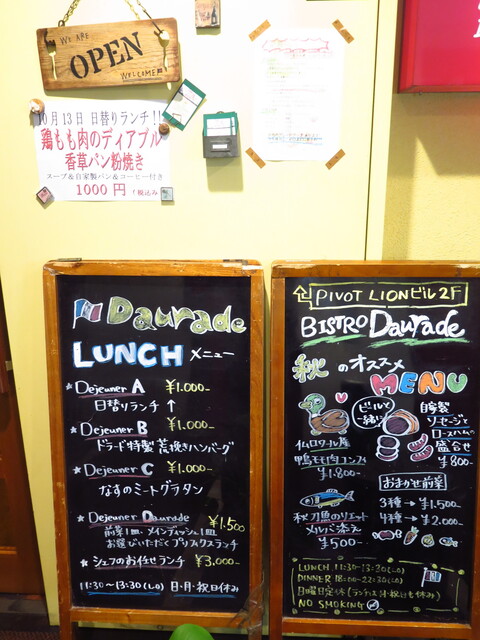 WE ARE
OPEN
WELCOME
10月13日 日替りランチ!!
鶏もも肉のディアブル
香草パン粉焼き
スープ&自家製パン&コーヒー付き
1000円
Daurade
LUNCH メニュー
Dejeuner A ¥1.000-
日替りランチ ↑
Dejeuner B ¥1.000-
ドラード特製 荒挽きハンバーグ
Dejeuner C ¥1.000-
なすのミートグラタン
Dejeuner Daurade ¥1.500
前菜1皿・メインディッシュ1皿
お選びいただくプリフィクスランチ
シェフのお任せランチ ¥3.000-
11:30~13:30(LO) 日・月・祝日休み
PIVOT LIONビル2F
BISTRO Daurade
秋のオススメ
MENU
ビールで一緒に
自家製
ソーセージと
ロースハムの
盛合せ
¥800-
鴨モモ肉コンフィ
¥1.800-
おまかせ前菜
3種→¥1.500
4種→¥2.000
秋刀魚のリエット
メルバ添え
¥500-
LUNCH 11:30-13:30(LO)
DINNER 18:00-22:30(LO)
日曜日定休(ランチは月・祝日も休み)
NO SMOKING